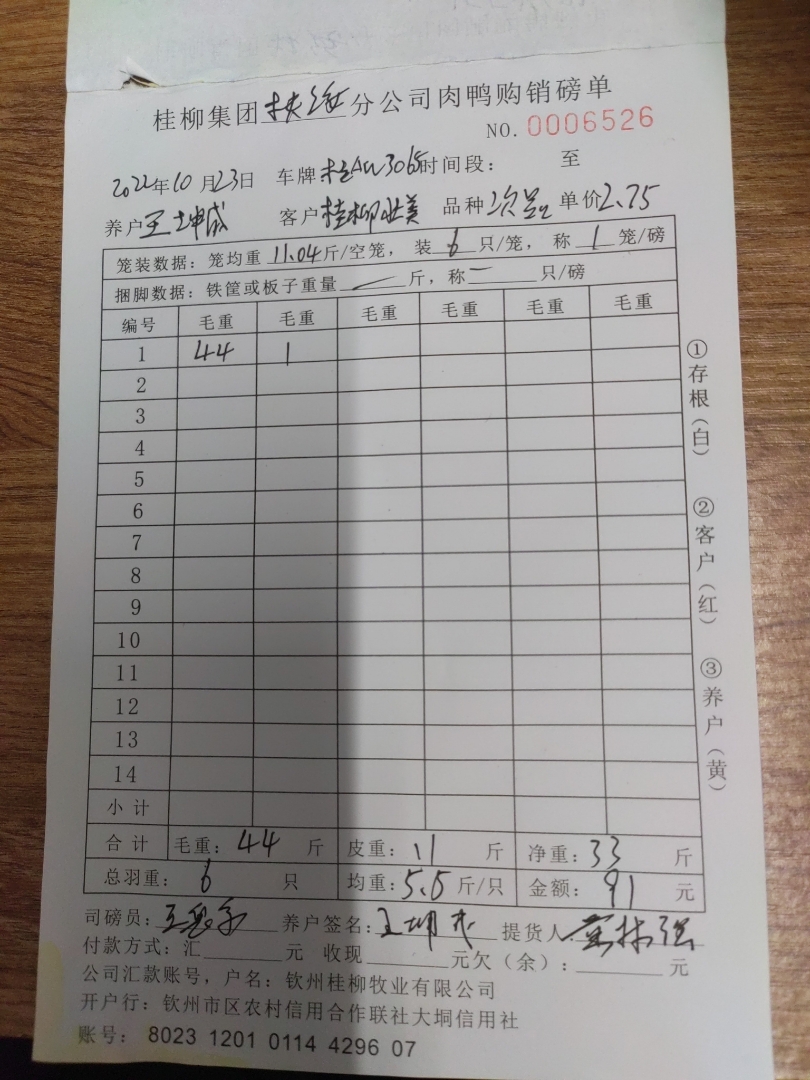 桂柳集团扶绥分公司肉鸭购销磅单
NO. 0006526
2022年10月23日 车牌 时间段： 至
养户王坤成 客户桂柳 品种次品 单价2.75
笼装数据：笼均重11.04斤/空笼，装6只/笼，称1笼/磅
捆脚数据：铁筐或板子重量一斤，称一只/磅
编号 毛重 毛重 毛重 毛重 毛重 毛重
1 44 1
2
3
4
5
6
7
8
9
10
11
12
13
14
小计
合计 毛重：44斤 皮重：11斤 净重：33斤
总羽重：6只 均重：5.5斤/只 金额：91元
司磅员： 养户签名：王坤成 提货人：
付款方式：汇 元 收现 元欠（余）： 元
公司汇款账号，户名：钦州桂柳牧业有限公司
开户行：钦州市区农村信用合作联社大垌信用社
账号：8023 1201 0114 4296 07
①存根（白）
②客户（红）
③养户（黄）